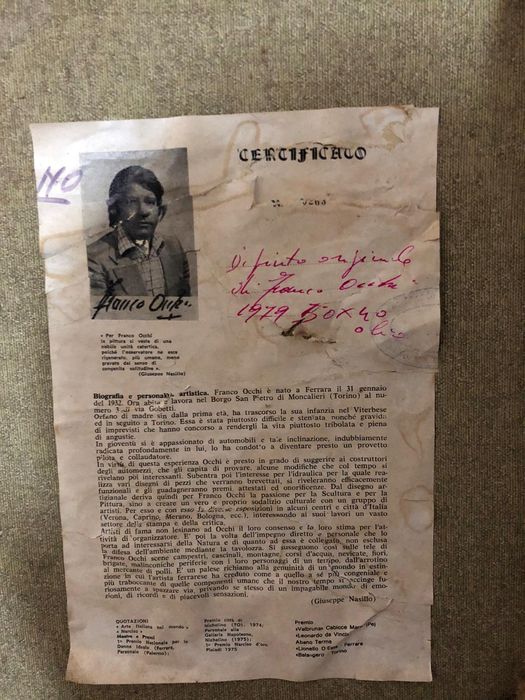 CERTIFICATO
N. 0208
140
Dipinto originale
di Franco Occhi
1979 50x40
olio
Franco Occhi
« Per Franco Occhi
la pittura si vesta di una
nobile unità catartica,
poiché l'osservatore ne esce
rigenerato, più umano, meno
gravato dal senso di
congenita solitudine ».
(Giuseppe Nasillo)
Biografia e personalità artistica. Franco Occhi è nato a Ferrara il 31 gennaio
del 1932. Ora abita e lavora nel Borgo San Pietro di Moncalieri (Torino) al nu-
mero 3 di via Gobetti.
Orfano di madre sin dalla prima età, ha trascorso la sua infanzia nel Viterbese
ed in seguito a Torino. Essa è stata piuttosto difficile e stentata poiché gravidi
di imprevisti che hanno concorso a rendergli la vita piuttosto tribolata e piena
di angustie.
In gioventù si è appassionato di automobili e tale inclinazione, indubbiamente
radicata profondamente in lui, lo ha condotto a diventare presto un provetto
pilota e collaudatore.
In virtù di questa esperienza Occhi è presto in grado di suggerire ai costruttori
degli automezzi, che gli capita di provare, alcune modifiche che col tempo si
rivelano poi interessanti. Subentra poi l'interesse per l'idraulica per la quale rea-
lizza vari disegni di pezzi che verranno brevettati, si riveleranno efficacemente
funzionali e gli guadagneranno premi, attestati ed onorificenze. Dal disegno ar-
tigianale deriva quindi per Franco Occhi la passione per la Scultura e per la
Pittura, sino a creare un vero e proprio sodalizio culturale con un gruppo di
artisti. Per esso e con esso fa diverse esposizioni in alcuni centri e città d'Italia
(Verona, Caprino, Merano, Bologna, ecc.), interessando ai suoi lavori un vasto
settore della stampa e della critica.
Artisti di fama non lesinano ad Occhi il loro consenso e la loro stima per l'at-
tività di organizzatore. E' poi la volta dell'impegno diretto e personale che lo
porta ad interessarsi della Natura e di quanto ad essa è collegato, non esclusa
la difesa dell'ambiente mediante la tavolozza. Si susseguono così sulle tele di
Franco Occhi scene campestri, cascinali, montagne, corsi d'acqua, nevicate, fiori,
brigate, malinconiche periferie con i loro personaggi di un tempo, dall'arrotino
al mercante di palli. E' un palese richiamo alla genuinità di un mondo in estin-
zione in cui l'artista ferrarese ha creduto come a quello a sé più congeniale e
più traboccante di quelle componenti umane che il nostro tempo si accinge fu-
riosamente a spazzare via, privando se stesso di un impagabile mondo di emo-
zioni, di ricordi e di piacevoli sensazioni.
(Giuseppe Nasillo)
QUOTAZIONI
« Arte Italiana nel mondo »
« Narciso »
Mostre e Premi
1° Premio Nazionale per la
Donna Ideale (Ferrara)
Personale (Palermo)
Premio città di
Nichelino (TO), 1974,
Personale alla
Galleria Napoleone,
Nichelino (1975)
1° Premio Narciso d'oro,
Pleiadi 1975
Premio
«Valbruna» Cabicce Mare (Ps)
«Leonardo da Vinci»
Abano Terme
«Lionello D'Este» Ferrara
«Balangero» Torino